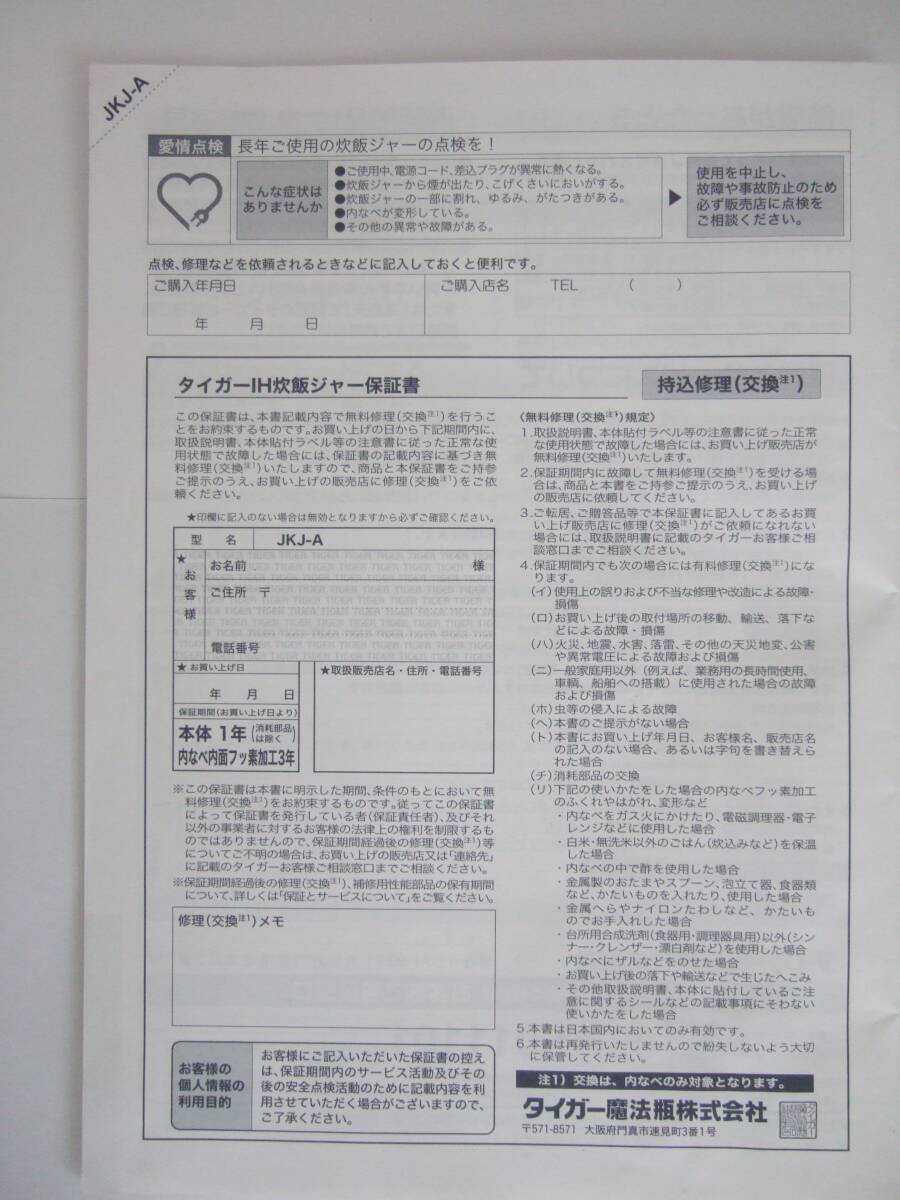 JKJ-A
愛情点検 長年ご使用の炊飯ジャーの点検を！
こんな症状は
ありませんか
●ご使用中、電源コード、差込プラグが異常に熱くなる。
●炊飯ジャーから煙が出たり、こげくさいにおいがする。
●炊飯ジャーの一部に割れ、ゆるみ、がたつきがある。
●内なべが変形している。
●その他の異常や故障がある。
▶
使用を中止し、
故障や事故防止のため
必ず販売店に点検を
ご相談ください。
点検、修理などを依頼されるときなどに記入しておくと便利です。
ご購入年月日
年 月 日
ご購入店名 TEL ( )
タイガーIH炊飯ジャー保証書
持込修理(交換注1)
この保証書は、本書記載内容で無料修理(交換注1)を行うこ
とをお約束するものです。お買い上げの日から下記期間内に、
取扱説明書、本体貼付ラベル等の注意書に従った正常な使
用状態で故障した場合には、保証書の記載内容に基づき無
料修理(交換注1)いたしますので、商品と本保証書をご持参
ご提示のうえ、お買い上げの販売店に修理(交換注1)をご依
頼ください。
★印欄に記入のない場合は無効となりますから必ずご確認ください。
型 名 JKJ-A
★お客様
お名前 様
ご住所 〒
電話番号
★お買い上げ日
年 月 日
保証期間(お買い上げ日より)
本体 1年(消耗部品は除く)
内なべ内面フッ素加工3年
★取扱販売店名・住所・電話番号
※この保証書は本書に明示した期間、条件のもとにおいて無
料修理(交換注1)をお約束するものです。従ってこの保証書
によって保証書を発行している者(保証責任者)、及びそれ
以外の事業者に対するお客様の法律上の権利を制限するも
のではありませんので、保証期間経過後の修理(交換注1)等
についてご不明の場合は、お買い上げの販売店又は「連絡先」
に記載のタイガーお客様ご相談窓口までご相談ください。
※保証期間経過後の修理(交換注1)、補修用性能部品の保有期間
について、詳しくは「保証とサービスについて」をご覧ください。
修理(交換注1)メモ
お客様の
個人情報の
利用目的
お客様にご記入いただいた保証書の控え
は、保証期間内のサービス活動及びその
後の安全点検活動のために記載内容を利
用させていただく場合がございますので、
ご了承ください。
〈無料修理(交換注1)規定〉
1.取扱説明書、本体貼付ラベル等の注意書に従った正常
な使用状態で故障した場合には、お買い上げ販売店が
無料修理(交換注1)いたします。
2.保証期間内に故障して無料修理(交換注1)を受ける場
合は、商品と本書をご持参ご提示のうえ、お買い上げ
の販売店に依頼してください。
3.ご転居、ご贈答品等で本保証書に記入してあるお買
い上げ販売店に修理(交換注1)がご依頼になれない
場合には、取扱説明書に記載のタイガーお客様ご相
談窓口までご相談ください。
4.保証期間内でも次の場合には有料修理(交換注1)にな
ります。
(イ)使用上の誤りおよび不当な修理や改造による故障・
損傷
(ロ)お買い上げ後の取付場所の移動、輸送、落下な
どによる故障・損傷
(ハ)火災、地震、水害、落雷、その他の天災地変、公害
や異常電圧による故障および損傷
(ニ)一般家庭用以外(例えば、業務用の長時間使用、
車輌、船舶への搭載)に使用された場合の故障
および損傷
(ホ)虫等の侵入による故障
(ヘ)本書のご提示がない場合
(ト)本書にお買い上げ年月日、お客様名、販売店名
の記入のない場合、あるいは字句を書き替えら
れた場合
(チ)消耗部品の交換
(リ)下記の使いかたをした場合の内なべフッ素加工
のふくれやはがれ、変形など
・内なべをガス火にかけたり、電磁調理器・電子
レンジなどに使用した場合
・白米・無洗米以外のごはん(炊込みなど)を保温
した場合
・内なべの中で酢を使用した場合
・金属製のおたまやスプーン、泡立て器、食器類
など、かたいものを入れたり、使用した場合
・金属へらやナイロンたわしなど、かたいも
のでお手入れした場合
・台所用合成洗剤(食器用・調理器具用)以外(シン
ナー・クレンザー・漂白剤など)を使用した場合
・内なべにザルなどをのせた場合
・お買い上げ後の落下や輸送などで生じたへこみ
・その他取扱説明書、本体に貼付しているご注
意に関するシールなどの記載事項にそわない
使いかたをした場合
5.本書は日本国内においてのみ有効です。
6.本書は再発行いたしませんので紛失しないよう大切
に保管してください。
注1) 交換は、内なべのみ対象となります。
タイガー魔法瓶株式会社
〒571-8571 大阪府門真市速見町3番1号